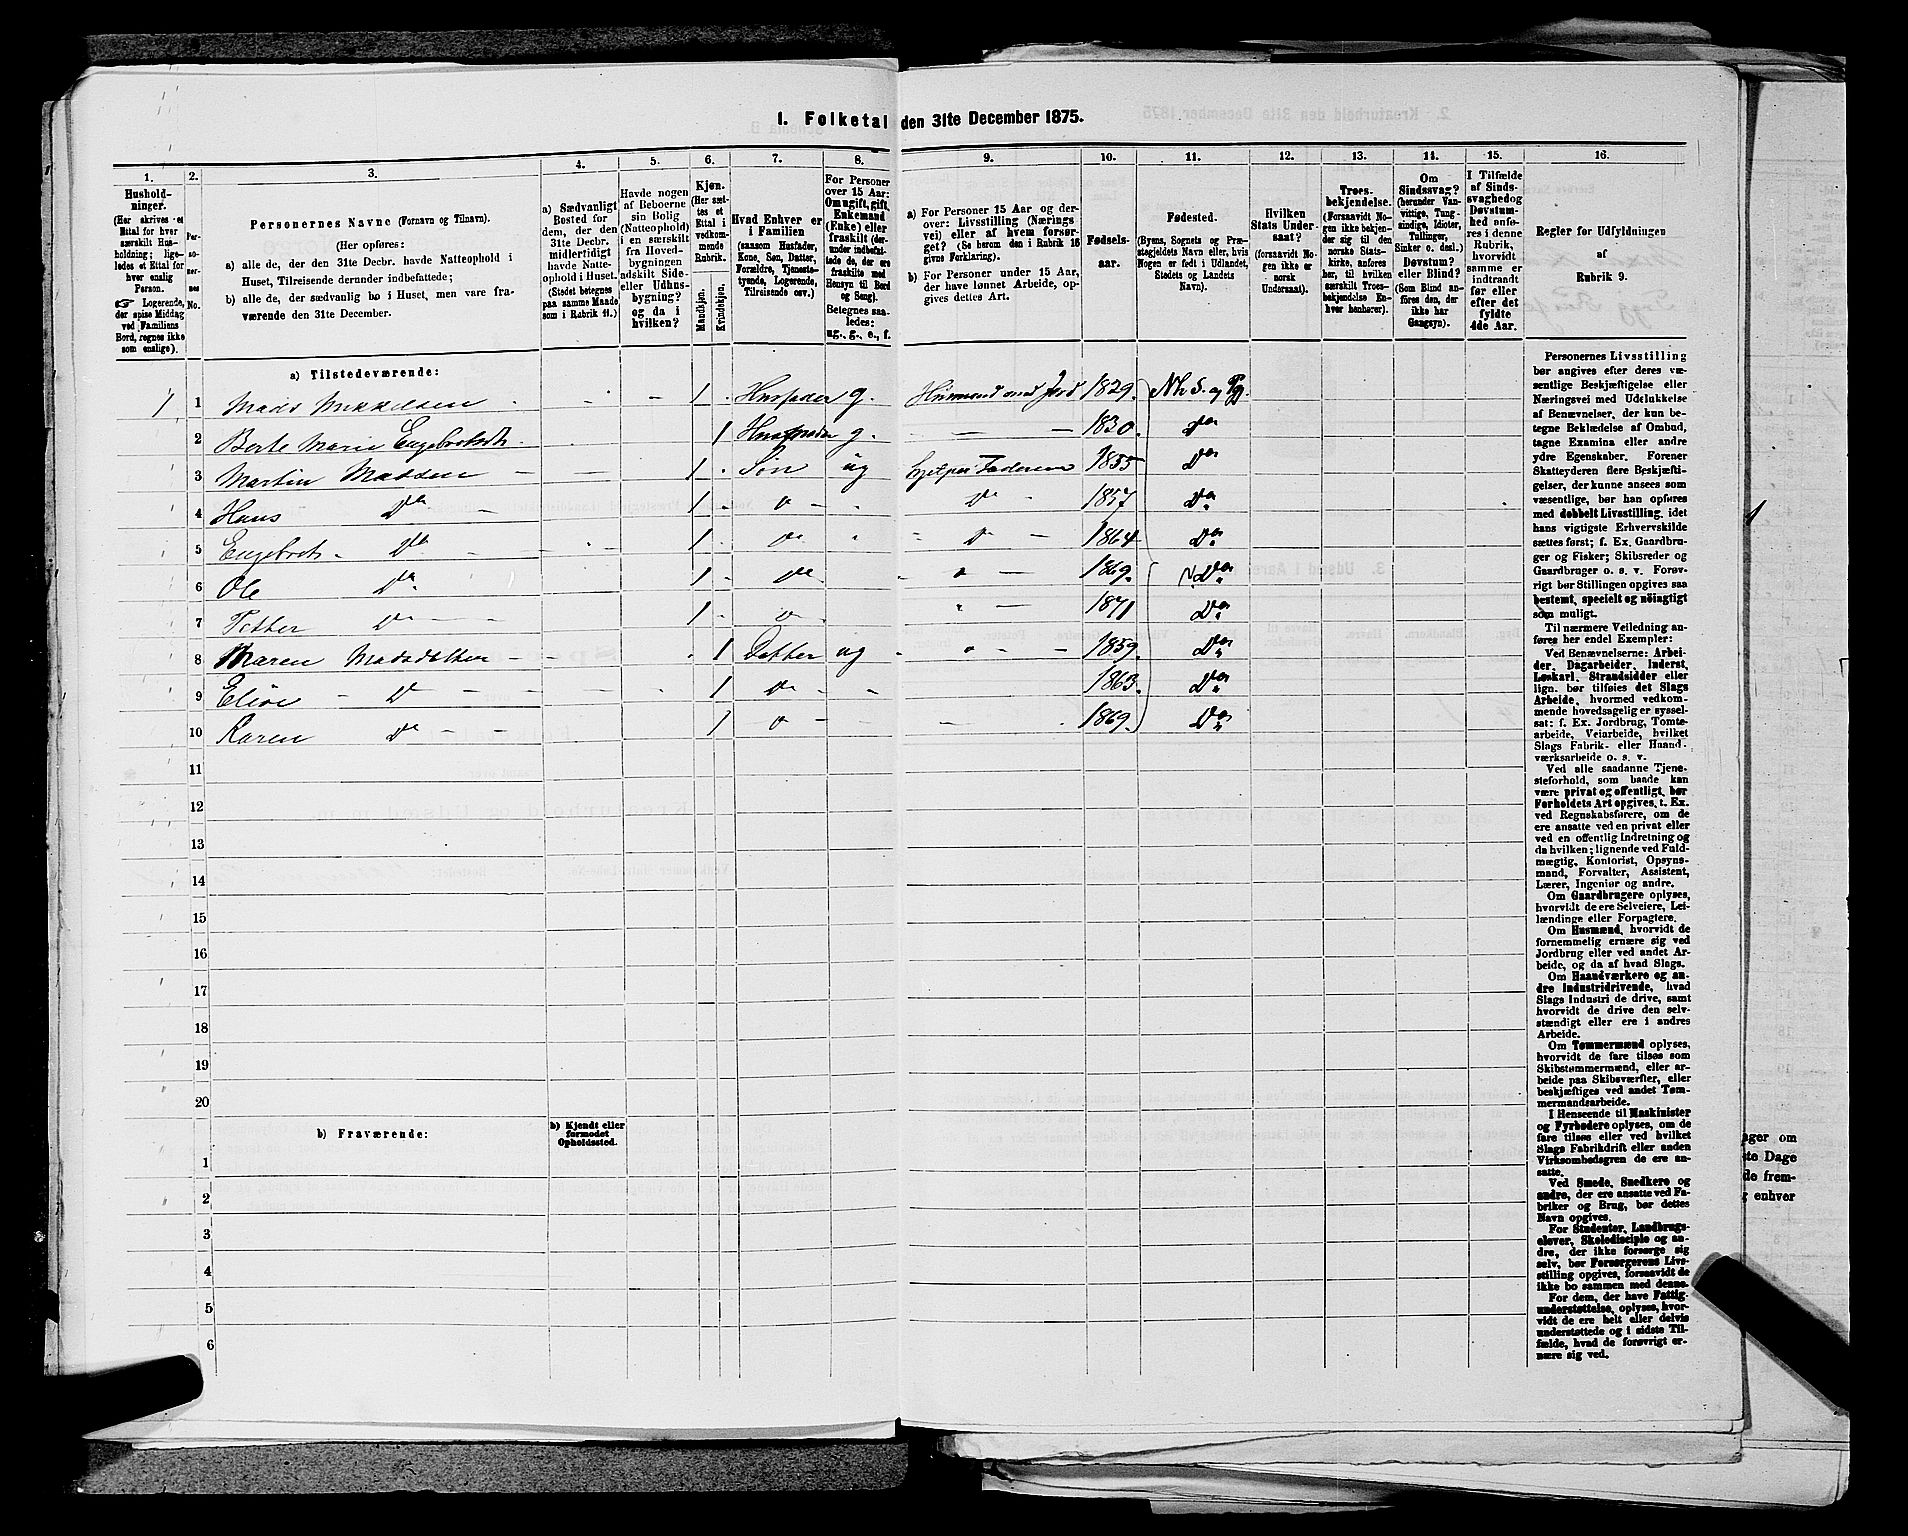 1. Folketal den 31te December 1875.
1.
2.
3.
4.
5.
6.
7.
8.
9.
10.
11.
12.
13.
14.
15.
16.
Hushold-
ninger.
(Her skrives et
Ettal for hver
særskilt Hus-
holdning; lige-
ledes et Ettal for
hver enslig
Person.
☞ Logerende,
der spise Middag
ved Familiens
Bord, regnes ikke
som enslige).
Per-
soner-
nes
No.
Personernes Navne (Fornavn og Tilnavn).
(Her opføres:
a) alle de, der den 31te Decbr. havde Natteophold i
Huset, Tilreisende derunder indbefattede;
b) alle de, der sædvanlig bo i Huset, men vare fra-
værende den 31te December.
a) Sædvanligt
Bosted for
dem, der den
31te Decbr.
midlertidigt
havde Natte-
ophold i Huset.
(Stedet betegnes
paa samme Maade
som i Rubrik 11.)
Havde nogen
af Beboerne
sin Bolig
(Natteophold)
i en særskilt
fra Hoved-
bygningen
adskilt Side-
eller Udhus-
bygning?
og da i
hvilken?
Kjøn.
(Her sæt-
tes et
Ettal i
vedkom-
mende
Rubrik.
Mandkjøn.
Kvindekjøn.
Hvad Enhver er
i Familien
(saasom Husfader,
Kone, Søn, Datter,
Forældre, Tjeneste-
tyende, Logerende,
Tilreisende osv.)
For Personer
over 15 Aar:
Om ugift, gift,
Enkemand
(Enke) eller
fraskilt (der-
under indbefat-
tede de, der ere
fraskilte med
Hensyn til Bord
og Seng).
Betegnes saa-
ledes:
ug., g., e., f.
a) For Personer 15 Aar og der-
over: Livsstilling (Nærings
vei) eller af hvem forsør-
get? (Se herom den i Rubrik 16
givne Forklaring).
b) For Personer under 15 Aar,
der have lønnet Arbeide, op-
gives dettes Art.
Fødsels-
aar.
Fødested.
(Byens, Sognets og Præ-
stegjeldets Navn eller, hvis
Nogen er født i Udlandet,
Stedets og Landets
Navn).
Hvilken
Stats Under-
saat?
(forsaavidt No-
gen ikke er
norsk
Undersaat).
Troes-
bekjendelse.
(Forsaavidt No-
gen ikke bekjen-
der sig til den
norske Stats-
kirke, anføres
her, til hvilken
særskilt Troes-
bekjendelse En-
hver henhører).
Om
Sindssvag?
(herunder Van-
vittige, Tung-
sindige, Idioter,
Tullinger,
Sinker o. desl.)
Døvstum?
eller Blind?
(Som Blind an-
føres den, der
ikke har
Gangsyn).
I Tilfælde
af Sinds-
svaghed og
Døvstum-
hed anfø-
res i denne
Rubrik,
hvorvidt
samme er
indtraadt
før eller
efter det
fyldte
4de Aar.
Regler for Udfyldningen
af
Rubrik 9.
a) Tilstedeværende:
1 1 Mads Mikkelsen 1 Husfader g. Husmand med Jord 1829. Nh S. og Pg.
2 Berte Marie Engebretsdt. 1 Husmoder g. 1830. Do
3 Martin Madsen 1 Søn ug Hjelper Faderen 1855 Do
4 Hans Do 1 Do 1857 Do
5 Engebret Do 1 Do Do 1864 Do
6 Ole Do 1 Do 1869. Do
7 Petter Do 1 1871 Do
8 Maren Madsdatter 1 Datter ug 1859. Do
9 Elise Do 1 Do 1863. Do
10 Karen Do 1 1869. Do
11
12
13
14
15
16
17
18
19
20
b) Fraværende:
b) Kjendt eller
formodet
Opholdssted.
1
2
3
4
5
6
Personernes Livsstilling
bør angives efter deres væ-
sentlige Beskjæftigelse eller
Næringsvei med Udelukkelse
af Benævnelser, der kun be-
tegne Beklædelse af Ombud,
tagne Examina eller andre
ydre Egenskaber. Forener
Skatteyderen flere Beskjæfti-
gelser, der kunne ansees som
væsentlige, bør han opføres
med dobbelt Livsstilling, idet
hans vigtigste Erhvervskilde
sættes først; f. Ex. Gaardbru-
ger og Fisker; Skibsreder og
Gaardbruger o. s. v. Forøv-
rigt bør Stillingen opgives saa
bestemt, specielt og nöiagtigt
som muligt.
Til nærmere Veiledning an-
føres her endel Exempler:
Ved Benævnelserne: Arbei-
der, Dagarbeider, Inderst,
Løskarl, Strandsidder eller
lign. bør tilføies det Slags
Arbeide, hvormed vedkom-
mende hovedsagelig er syssel-
sat: f. Ex. Jordbrug, Tomte-
arbeide, Veiarbeide, hvilket
Slags Fabrik- eller Haand-
værksarbeide o. s. v.
Ved alle saadanne Tjene-
steforhold, som baade kan
være privat og offentligt, bør
Forholdets Art opgives, t. Ex.
ved Regnskabsførere, om de
ere ansatte ved en privat eller
ved en offentlig Indretning og
da hvilken; lignende ved Fuld-
mægtig, Kontorist, Opsyns-
mand, Forvalter, Assistent,
Lærer, Ingeniør og andre.
Om Gaardbrugere oplyses,
hvorvidt de ere Selveiere, Lei-
lændinge eller Forpagtere.
Om Husmænd, hvorvidt de
fornemmelig ernære sig ved
Jordbrug eller ved andet Ar-
beide, og da af hvad Slags.
Om Haandværkere og an-
dre Industridrivende, hvad
Slags Industri de drive, samt
hvorvidt de drive den selv-
stændigt eller ere i andres
Arbeide.
Om Tømmermænd oplyses,
hvorvidt de fare tilsøs som
Skibstømmermænd, eller ar-
beide paa Skibsværfter, eller
beskjæftiges ved andet Tøm-
mermandsarbeide.
I Henseende til Maskinister
og Fyrbødere oplyses, om de
fare tilsøs eller ved hvilket
Slags Fabrikdrift eller anden
Virksomhedsgren de ere an-
satte.
Ved Smede, Snedkere og
andre, der ere ansatte ved Fa-
briker og Brug, bør dettes
Navn opgives.
For Studenter, Landbrugs-
elever, Skoledisciple og an-
dre, der ikke forsørge sig
selv, bør Forsørgerens Livs-
stilling opgives, forsaavidt de
ikke bo sammen med denne.
For dem, der have Fattig-
understøttelse, oplyses, hvor-
vidt de ere helt eller delvis
understøttede og i sidste Til-
fælde, hvad de forøvrigt er-
nære sig ved.
ager om
ste Dage
de frem-
enhver